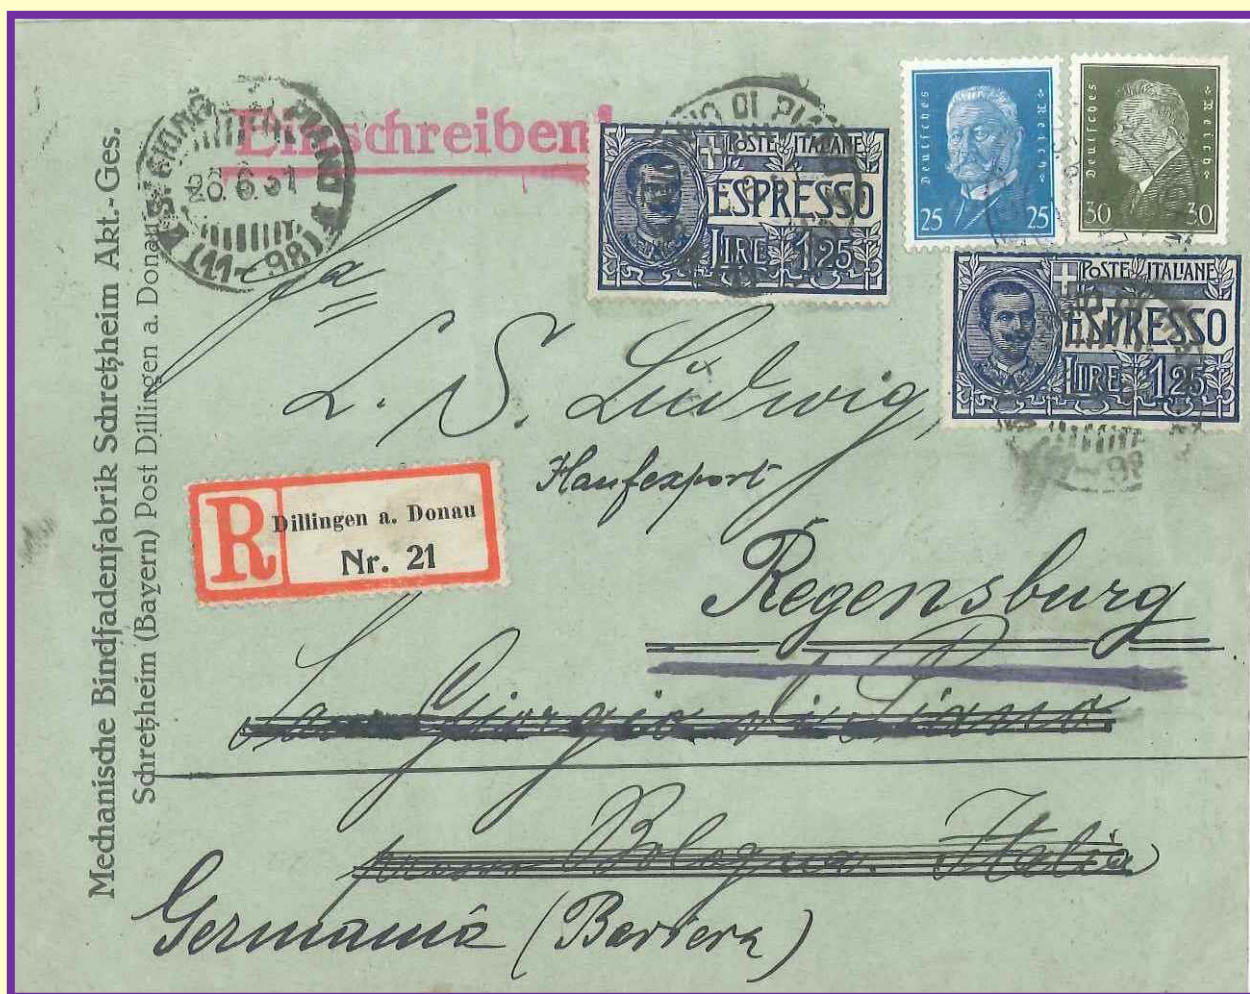 Mechanische Bindfadenfabrik Schretzheim Akt.-Ges.
Schretzheim (Bayern) Post Dillingen a. Donau
Einschreiben!
26.6.31
(11-98)
POSTE ITALIANE
ESPRESSO
LIRE 1,25
Deutsches Reich
25 25
Deutsches Reich
30 30
POSTE ITALIANE
ESPRESSO
LIRE 1,25
L. S. Ludwig,
Hanfexport
Regensburg
R
Dillingen a. Donau
Nr. 21
San Giorgio di Piano
presso Bologna. Italia
Germania (Baviera)